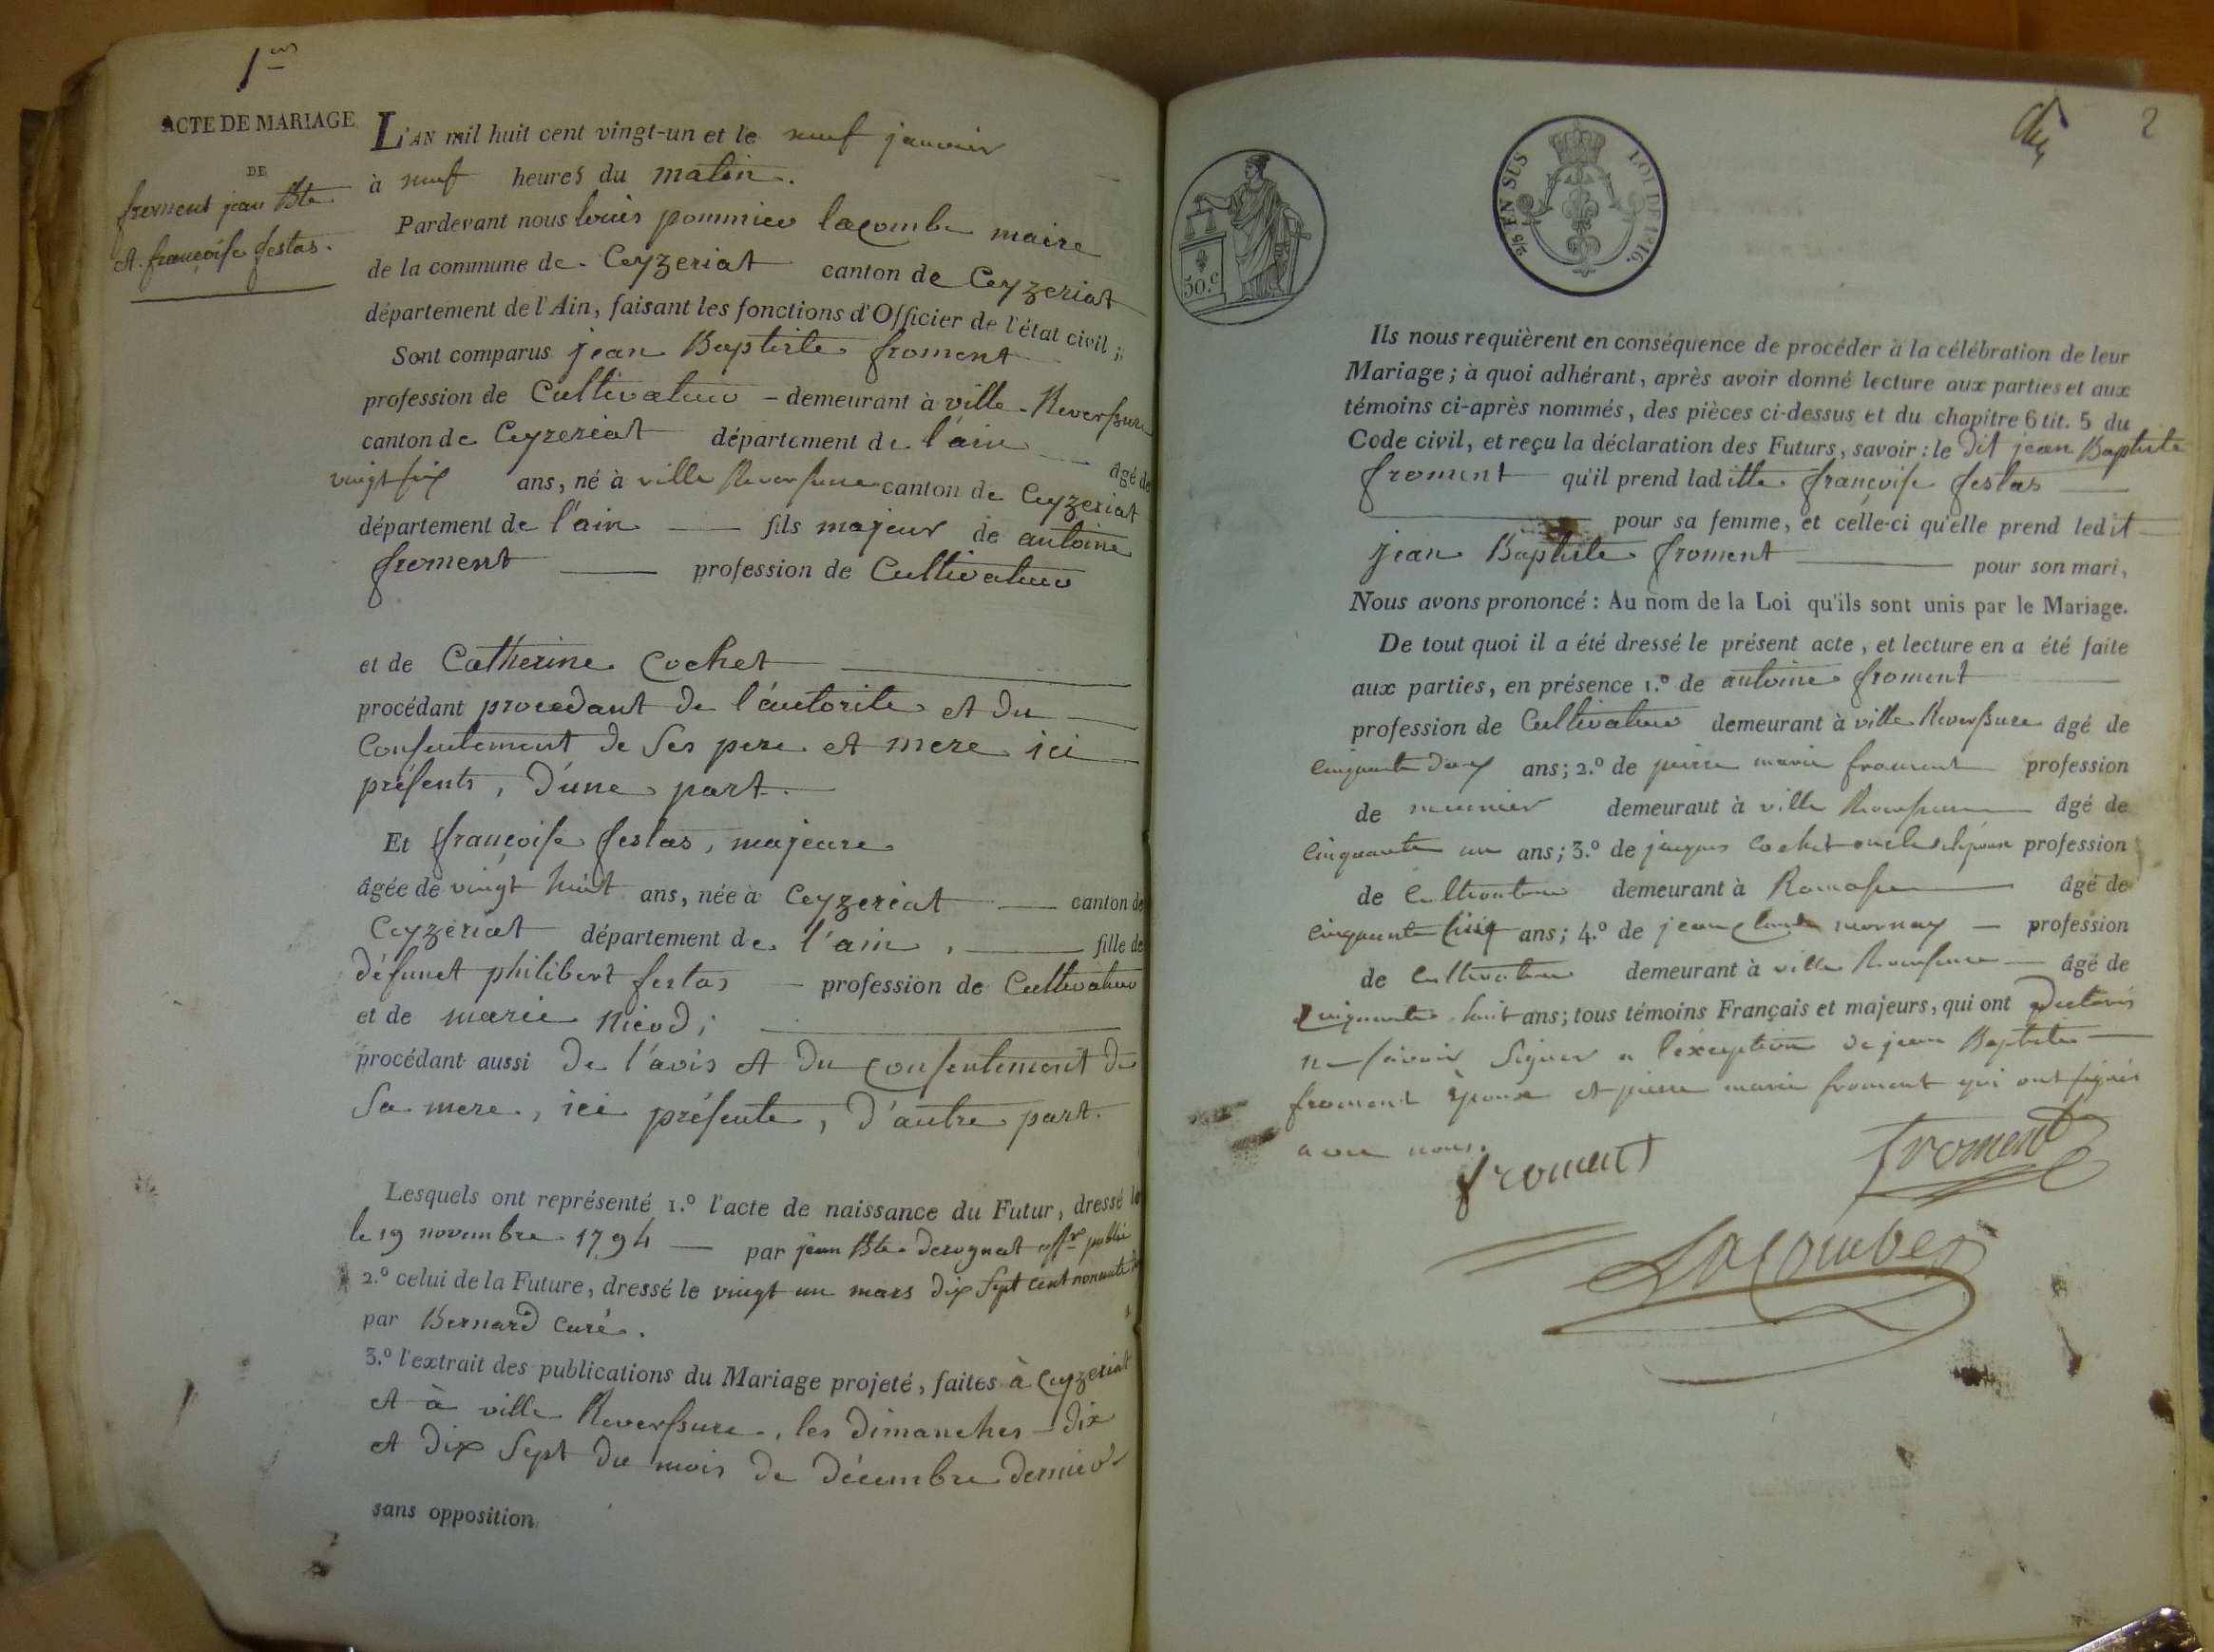 1er
ACTE DE MARIAGE
DE
froment jean Bte
et françoise festas.
L'AN mil huit cent vingt-un et le neuf janvier
à neuf heures du matin.
Pardevant nous louis pommier lacombe maire
de la commune de Ceyzeriat canton de Ceyzeriat
département de l'Ain, faisant les fonctions d'Officier de l'état civil ;
Sont comparus jean Baptiste froment
profession de Cultivateur - demeurant à ville Reverssure
canton de Ceyzeriat département de l'ain âgé de
vingt six ans, né à ville Reverssure canton de Ceyzeriat
département de l'ain fils majeur de antoine
froment profession de Cultivateur
et de Catherine Cochet
procédant procedant de l'autorite et du
Consentement de ses pere et mere ici
présents, d'une part.
Et françoise festas, majeure
âgée de vingt huit ans, née à Ceyzeriat canton de
Ceyzériat département de l'ain, fille de
défunct philibert festas - profession de Cultivateur
et de marie nicod ;
procédant aussi de l'avis et du consentement de
sa mere, ici présente, d'autre part.
Lesquels ont représenté 1.° l'acte de naissance du Futur, dressé le
le 19 novembre 1794 par jean Bte derognat offr public
2.° celui de la Future, dressé le vingt un mars dix sept cent nonante
par Bernard curé.
3.° l'extrait des publications du Mariage projeté, faites à Ceyzeriat
et à ville Reverssure, les dimanches dix
et dix sept du mois de décembre dernier
sans opposition
2
30.c
2/5 EN SUS
LOI DE 1816.
Ils nous requièrent en conséquence de procéder à la célébration de leur
Mariage ; à quoi adhérant, après avoir donné lecture aux parties et aux
témoins ci-après nommés, des pièces ci-dessus et du chapitre 6 tit. 5 du
Code civil, et reçu la déclaration des Futurs, savoir : le dit jean Baptiste
froment qu'il prend laditte françoise festas
pour sa femme, et celle-ci qu'elle prend ledit
jean Baptiste froment pour son mari,
Nous avons prononcé : Au nom de la Loi qu'ils sont unis par le Mariage.
De tout quoi il a été dressé le présent acte, et lecture en a été faite
aux parties, en présence 1.° de antoine froment
profession de Cultivateur demeurant à ville Reverssure âgé de
cinquante deux ans ; 2.° de pierre marie froment profession
de meunier demeuraut à ville Reverssure âgé de
cinquante un ans ; 3.° de jacques Cochet oncle profession
de Cultivateur demeurant à âgé de
cinquante cinq ans ; 4.° de jean Claude mornay - profession
de Cultivateur demeurant à ville Reverssure âgé de
cinquante huit ans ; tous témoins Français et majeurs, qui ont declarés
ne savoir signer a l'exception de jean Baptiste
froment époux et pierre marie froment qui ont signés
avec nous.
froment
froment
Lacombe